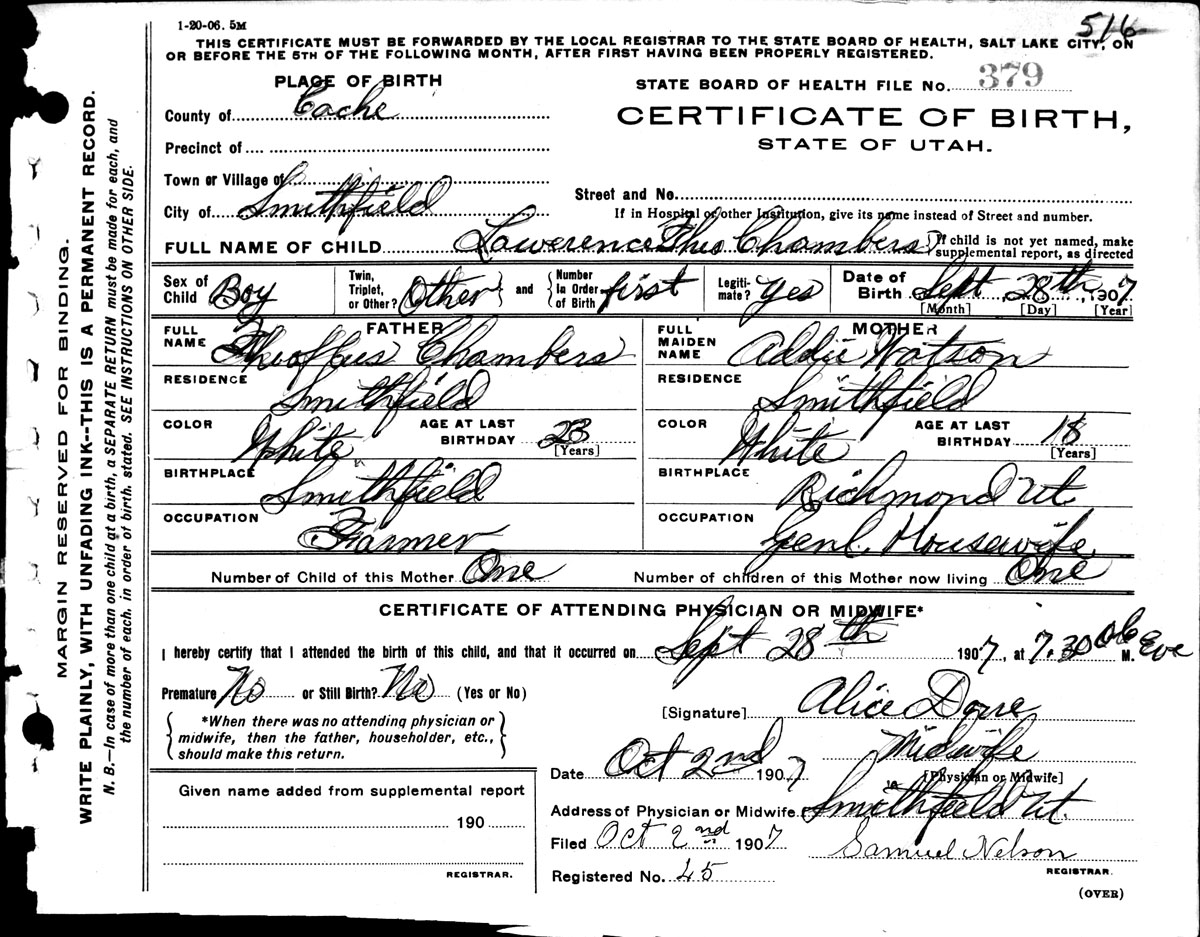 1-20-06. 5M
516
THIS CERTIFICATE MUST BE FORWARDED BY THE LOCAL REGISTRAR TO THE STATE BOARD OF HEALTH, SALT LAKE CITY, ON
OR BEFORE THE 5TH OF THE FOLLOWING MONTH, AFTER FIRST HAVING BEEN PROPERLY REGISTERED.
PLACE OF BIRTH
County of Cache
Precinct of
Town or Village of
City of Smithfield
STATE BOARD OF HEALTH FILE No. 379
CERTIFICATE OF BIRTH,
STATE OF UTAH.
Street and No.
If in Hospital or other Institution, give its name instead of Street and number.
FULL NAME OF CHILD Lawerence Theo Chambers
If child is not yet named, make
supplemental report, as directed
Sex of Child Boy
Twin, Triplet, or Other? Other
and Number In Order of Birth first
Legiti-mate? Yes
Date of Birth Sept 28th, 1907
[Month] [Day] [Year]
FATHER
FULL NAME Theoffus Chambers
RESIDENCE Smithfield
COLOR White AGE AT LAST BIRTHDAY 23 [Years]
BIRTHPLACE Smithfield
OCCUPATION Farmer
MOTHER
FULL MAIDEN NAME Addie Watson
RESIDENCE Smithfield
COLOR White AGE AT LAST BIRTHDAY 18 [Years]
BIRTHPLACE Richmond Ut.
OCCUPATION Genl. Housewife
Number of Child of this Mother One Number of children of this Mother now living One
CERTIFICATE OF ATTENDING PHYSICIAN OR MIDWIFE*
I hereby certify that I attended the birth of this child, and that it occurred on Sept 28th 1907, at 7.30 M. Eve
Premature No or Still Birth? No (Yes or No)
*When there was no attending physician or
midwife, then the father, householder, etc.,
should make this return.
[Signature] Alice Done
Midwife
[Physician or Midwife]
Date Oct 2nd 1907
Address of Physician or Midwife Smithfield Ut.
Filed Oct 2nd 1907 Samuel Nelson
REGISTRAR.
Registered No. 45
(OVER)
Given name added from supplemental report
190
REGISTRAR.
MARGIN RESERVED FOR BINDING.
WRITE PLAINLY, WITH UNFADING INK--THIS IS A PERMANENT RECORD.
N. B.—In case of more than one child at a birth, a SEPARATE RETURN must be made for each, and
the number of each, in order of birth, stated. SEE INSTRUCTIONS ON OTHER SIDE.